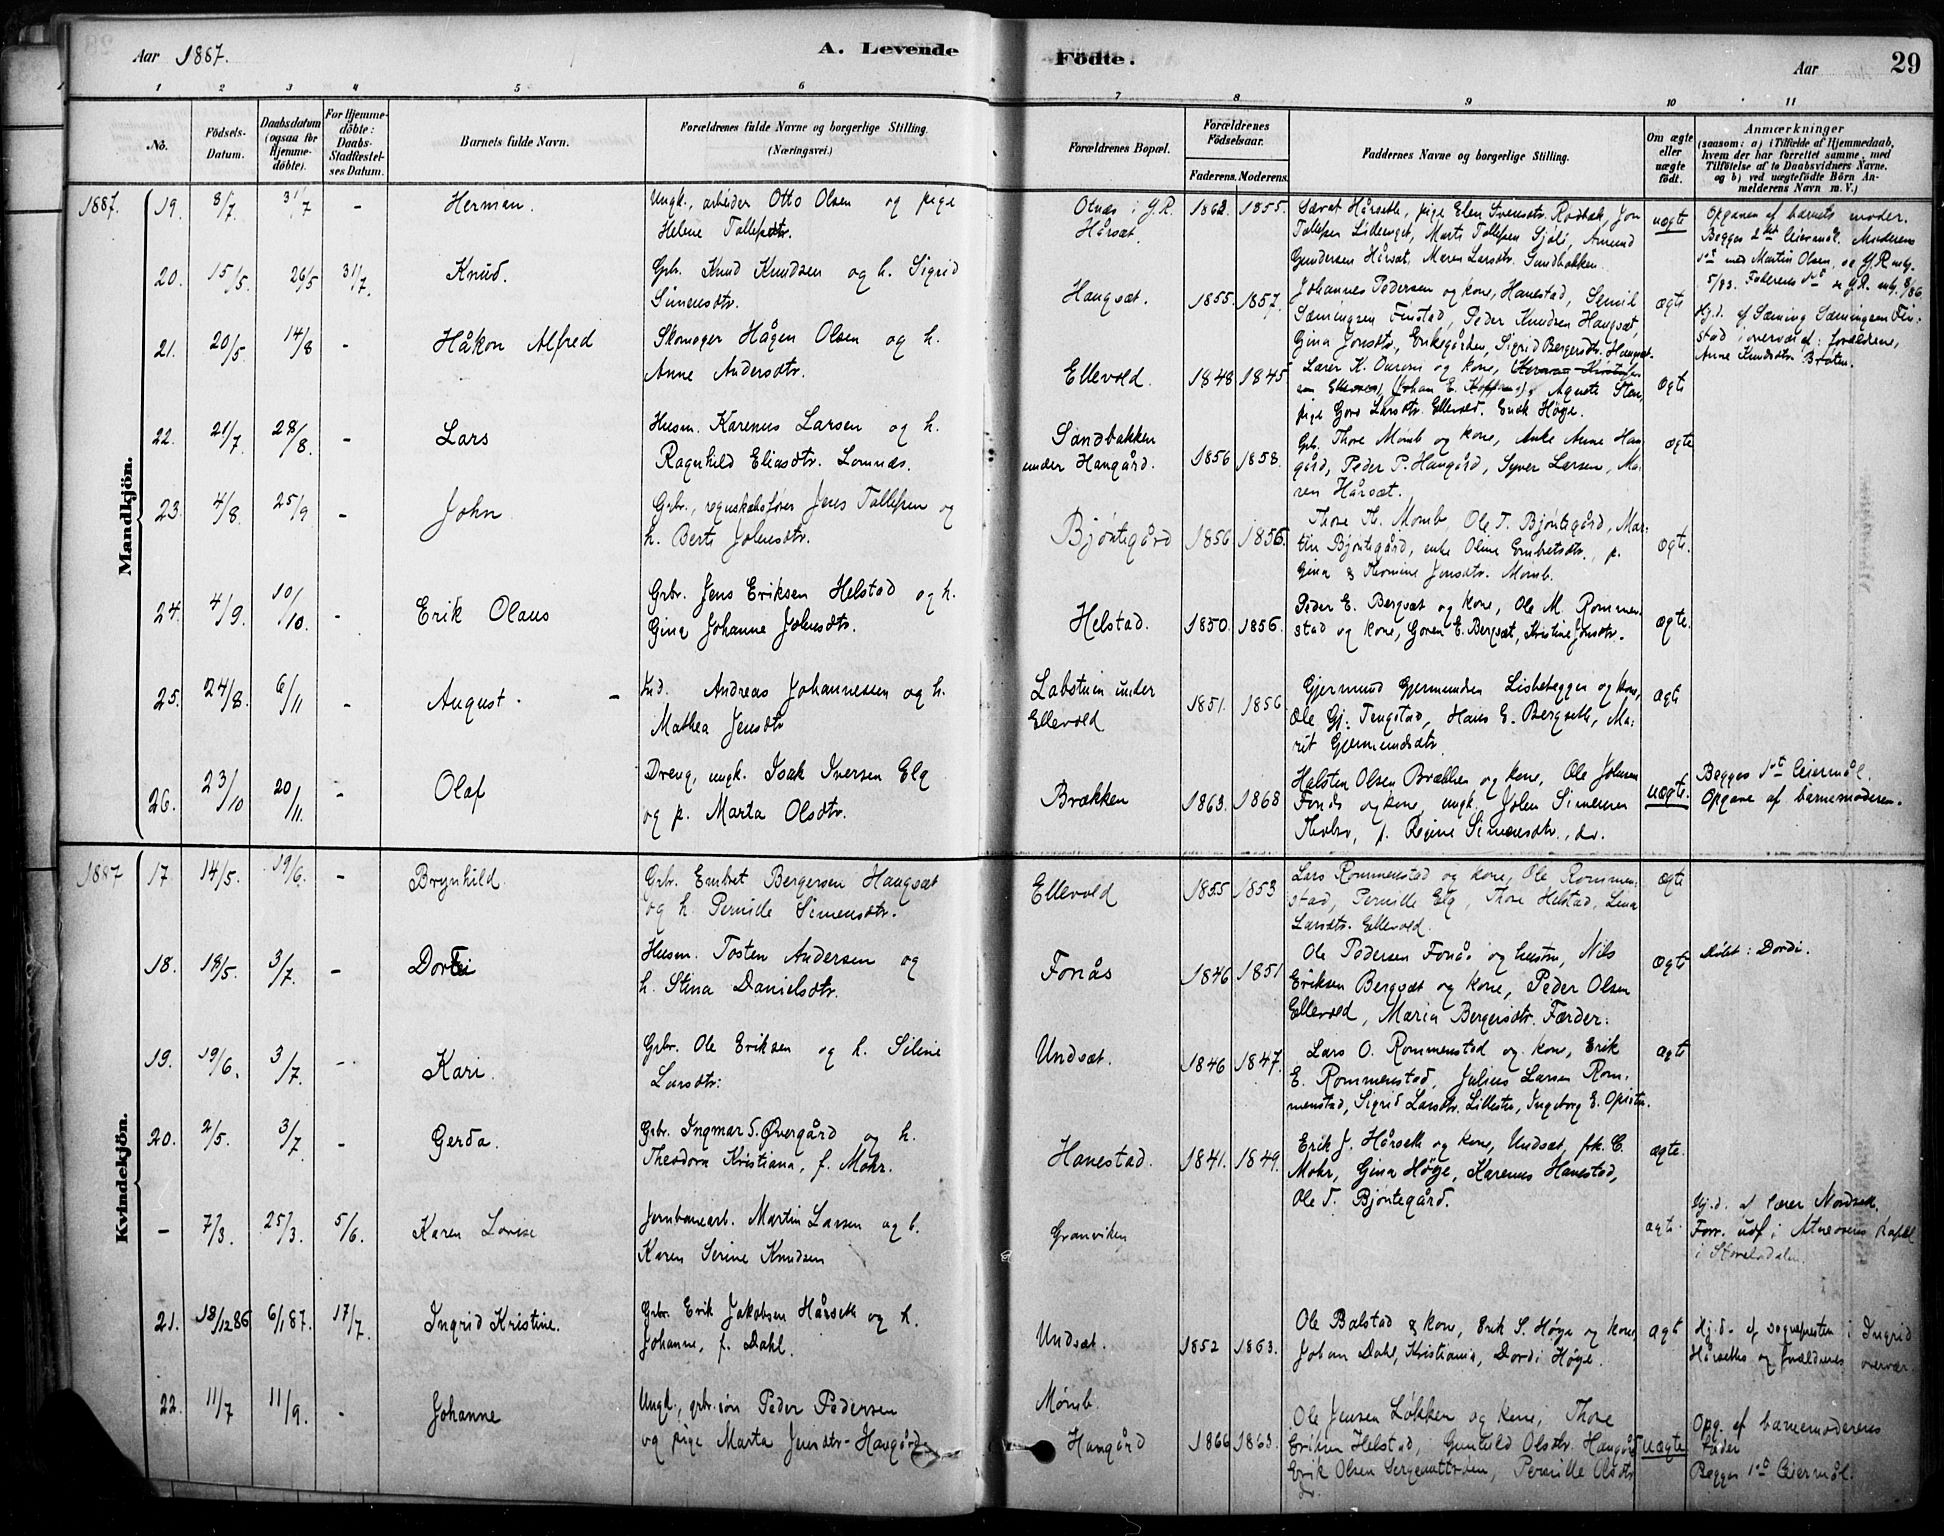 Aar 1887.
A. Levende
Födte.
Aar
29
1 2 3 4 5 6 7 8 9 10 11
No.
Födsels-
Datum.
Daabsdatum
(ogsaa for
Hjemme-
döbte).
For Hjemme-
döbte:
Daabs-
Stadfæstel-
ses Datum.
Barnets fulde Navn.
Forældrenes fulde Navne og borgerlige Stilling.
(Næringsvei.)
Forældrenes Bopæl.
Forældrenes
Födselsaar.
Faderens. Moderens.
Faddernes Navne og borgerlige Stilling.
Om ægte
eller
uægte
födt.
Anmærkninger
(saasom: a) i Tilfælde af Hjemmedaab,
hvem der har forrettet samme, med
Tilföielse af to Daabsvidners Navne.
og b) ved uægtefödte Börn An-
melderens Navn m. V.)
Mandkjön.
1887. 19. 8/7 31/7 - Herman.
Ungk., arbeider Otto Olsen og pige
Helene Tollefsdtr.
Otnæs i Y.R.
Hårsæt.
1862 1855.
Sævat Hårseth, pige Elen Svensdtr. Rødbæk, Jon
Tollefsen Lidenget, Marte Tollefsen Sjøli, Amund
Gundersen Hårsæt, Maren Larsdtr. Sandbakken
uægte
Opgaven af barnets moder.
Begges 2det leiermål. Moderens
1ste med Martin Olsen,
20. 15/5. 26/5 31/7. Knud.
Gbr. Knud Knudsen og h. Sigrid
Simensdtr.
Haugsæt. 1855. 1857.
Johannes Pedersen og kone, Hanestad,
Sæmingsen Finstad, Peder Knudsen Haugsæt,
Gina Jonsdtr, Eriksgården, Sigrid Bergersdtr. Haugsæt.
ægte
Hj.d. af Sæming Sæmingsen Fin-
stad i overvær af: forældrene,
Anne Knudsdtr. Bråten.
21. 20/5 14/8 - Håkon Alfred
Skomager Hågen Olsen og h.
Anne Andersdtr.
Ellevold. 1848 1845
Lærer K. og kone,
Agnete Sten,
pige Goro Larsdtr. Ellevold. Erik Høye.
ægte
22. 21/7. 28/8. - Lars
Husm. Karenus Larsen og h.
Ragnhild Eliasdtr. Lomnæs.
Sandbakken
under Haugård. 1856 1858.
Gbr. Thore Momb og kone, Enke Anne Hau-
gård, Peder P. Haugård, Syver Larsen, Ma-
ren Hårsæt.
ægte
23. 4/8. 25/9 - John
Grbr., regnskabsfører Jens Tollefsen og
h. Berte Johnsdtr.
Bjøntegård 1856 1856.
Thore Th. Momb, Ole T. Bjøntegård, Mar-
tin Bjøntegård, enke Oline Embretsdtr., p.
Gina & Hermine Jonsdtr. Momb.
ægte.
24. 4/9. 10/10. - Erik Olaus
Grbr. Jens Eriksen Helstad og h.
Gina Johanne Johnsdtr.
Helstad. 1850. 1856.
Peder E. Bergsæt og kone, Ole M. Rommen-
stad og kone, Goren E. Bergsæt, Kristine Jonsdtr.
ægte.
25. 24/8. 6/11 - August. -
Ind. Andreas Johannessen og h.
Mathea Jensdtr
Labstuen under
Ellevold 1851. 1856
Gjermund Gjermundsen Lisbetegga og kone,
Ole Gj. Tengstad, Hans E. Bergseth, Ma-
rit Gjermundsdtr
ægte
26. 23/10 20/11. - Olaf
Dreng, ungk. Isak Iversen Elg
og p. Marta Olsdtr.
Brækken 1863. 1868
Halsten Olsen Brækken og kone, Ole Johnsen
Fonås og kone, ungk. John Simensen
p. Regine Simensdtr., do.
uægte.
Begges 1ste leiermål.
Opgave af barnemoderen.
Kvindekjön.
1887 17. 14/5. 19/6. - Brynhild
Grbr. Embret Bergersen Haugsæt
og h. Pernille Simensdtr.
Ellevold 1855 1853
Lars Rommenstad og kone, Ole Rommen-
stad, Pernille Elg, Thore Helstad, Lina
Larsdtr. Ellevold.
ægte
18. 18/5. 3/7. - Dortei
Husm. Tosten Andersen og
h. Stina Danielsdtr.
Fonås 1846 1851
Ole Pedersen Fonås og hustru, Nils
Eriksen Bergsæt og kone, Peder Olsen
Ellevold, Maria Bergersdtr. Færder.
ægte
Døbt: Dordi.
19. 19/6. 3/7. - Kari.
Grbr. Ole Eriksen og h. Siline
Larsdtr.
Undsæt. 1846 1847.
Lars O. Rommenstad og kone, Erik
E. Rommenstad, Julius Larsen Rom-
menstad, Sigrid Larsdtr. Lillestu, Ingeborg E.
ægte
20. 2/5. 3/7. - Gerda.
Grbr. Ingmar S. Øvergård og h.
Theodora Kristiana, f. Mohr.
Hanestad. 1841. 1849.
Erik J. Hårseth og kone, Undsæt, frk. C.
Mohr, Gina Høye, Karenus Hanestad,
Ole T. Bjøntegård.
ægte.
- 7/3. 25/3. 5/6. Karen Lovise
Jernbanearb. Martin Larsen og h.
Karen Serine Knudsen
Granviken
ægte.
Hj.d. af lærer Nordset.
Forr. udf. i Atneosens kapel
i Storelvdalen.
21. 18/12 86 6/1 87. 17/7. Ingrid Kristine.
Grbr. Erik Jakobsen Hårseth og h.
Johanne, f. Dahl.
Undsæt. 1852 1863.
Ole Balstad & kone, Erik S. Høye og kone,
Johan Dahl, Kristiania, Dordi Høye.
ægte
Hj.d. af sognepresten i Ingrid
Hårseths og forældrenes overvær
22. 11/7 11/9. - Johanne
Ungk., grbr.søn Peder Pedersen
og pige Marta Jensdtr. Haugård
Momb.
Haugård 1866 1863.
Ole Jensen Løkken og kone, Thore
Eriksen Helstad, Gunhild Olsdtr. Haugård
Erik Olsen Sergeantløken, Pernille Olsdtr
do.
uægte
Opg. af barnemoderens
Fader
Begges 1ste Leiermål.